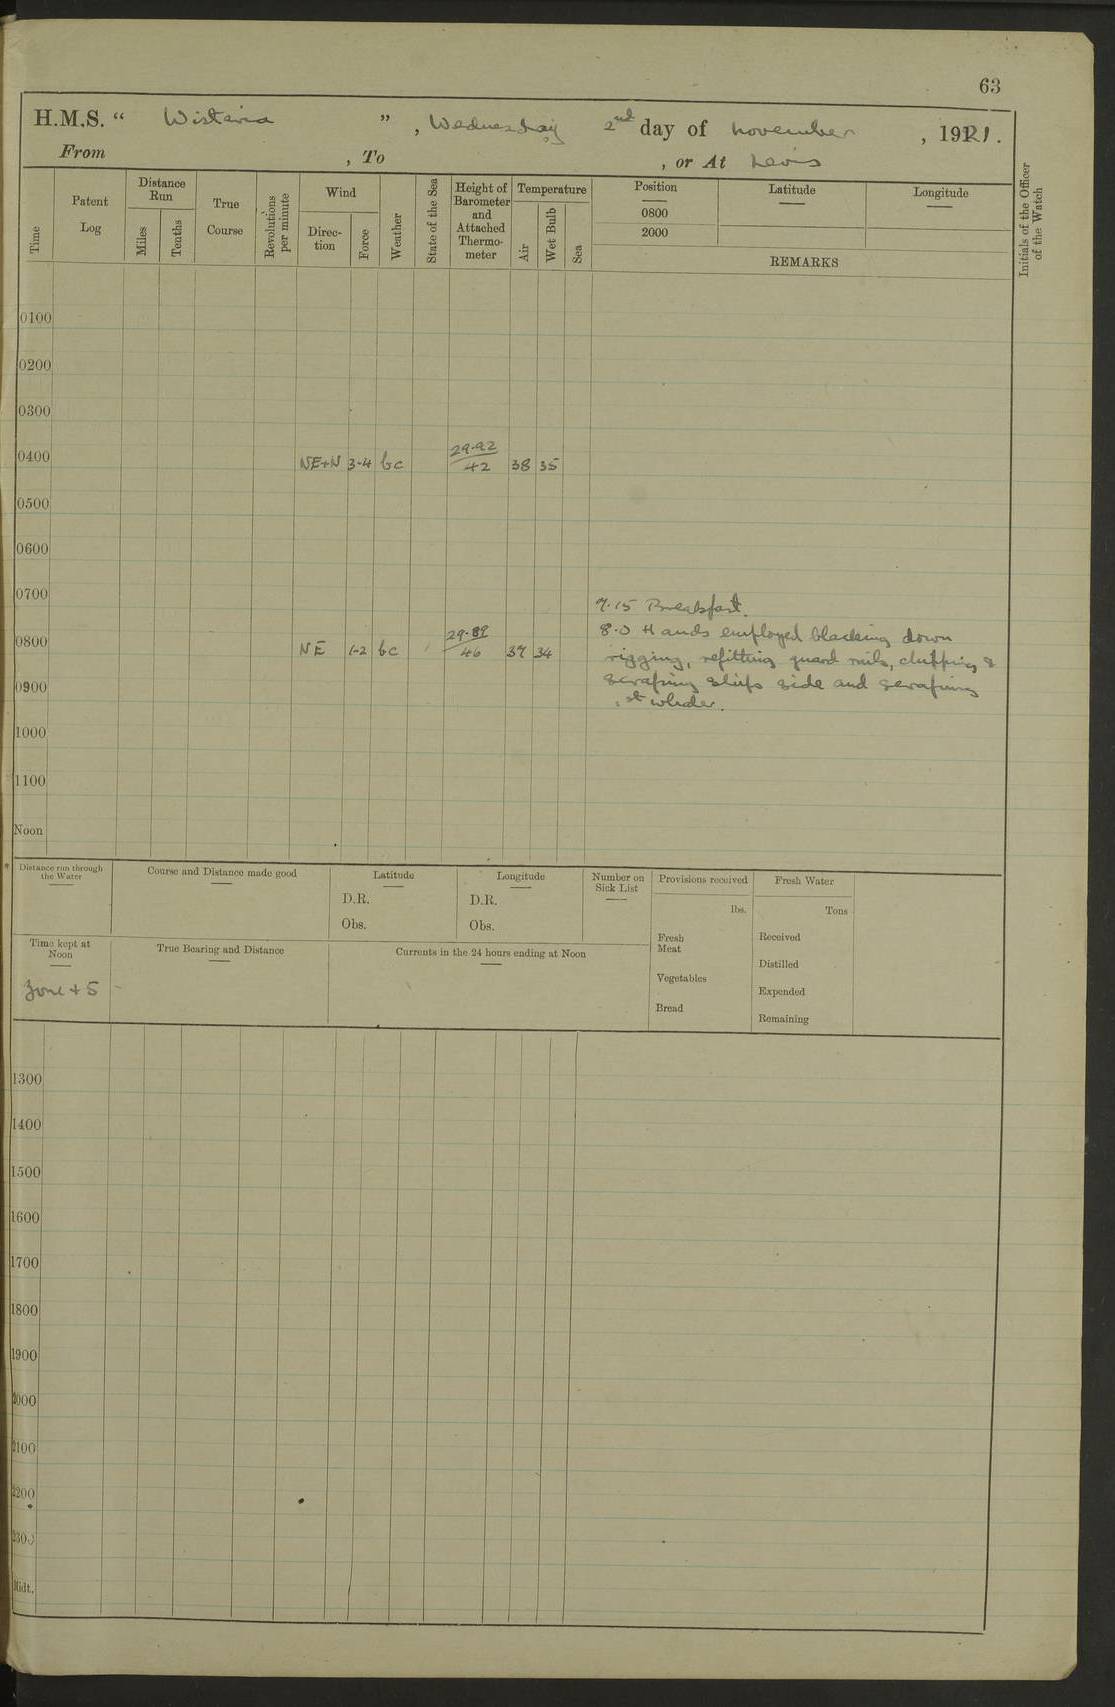 63
H.M.S. “ Wistaria ” , Wednesday 2nd day of November , 1921.
From , To , or At Levis
Time
Patent Log
Distance Run
Miles
Tenths
True Course
Revolutions per minute
Wind
Direc-tion
Force
Weather
State of the Sea
Height of Barometer and Attached Thermo-meter
Temperature
Air
Wet Bulb
Sea
Position
0800
2000
Latitude
Longitude
REMARKS
Initials of the Officer of the Watch
0100
0200
0300
0400 NE+N 3-4 bc 29.92 42 38 35
0500
0600
0700
7.15 Breakfast.
0800 NE 1-2 bc 29.89 46 37 34
8.0 Hands employed blacking down
rigging, refitting guard rails, chipping &
0900
scraping ships side and scraping
whaler.
1000
1100
Noon
Distance run through the Water
Course and Distance made good
Latitude
D.R.
Obs.
Longitude
D.R.
Obs.
Number on Sick List
Provisions received
lbs.
Fresh Meat
Vegetables
Bread
Fresh Water
Tons
Received
Distilled
Expended
Remaining
Time kept at Noon
Zone + 5
True Bearing and Distance
Currents in the 24 hours ending at Noon
1300
1400
1500
1600
1700
1800
1900
2000
2100
2200
2300
Midt.